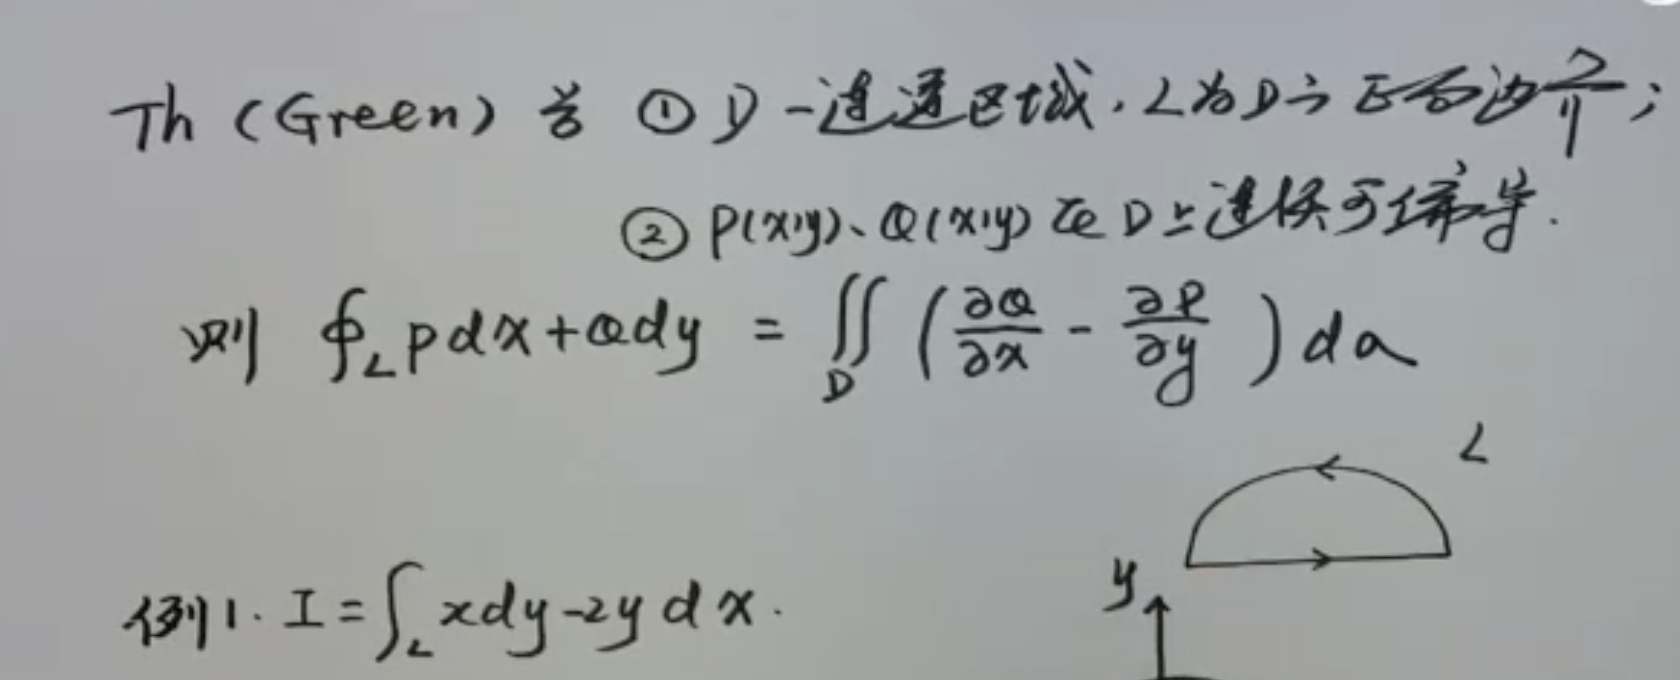 Th (Green) 若 ① D-连通区域, L为D之正向边界;
② P(x,y)、Q(x,y) 在D上连续可偏导.
则 ∮_L Pdx+Qdy = ∬_D (∂Q/∂x - ∂P/∂y) dσ
L
y
例1. I=∫_L xdy-2ydx.